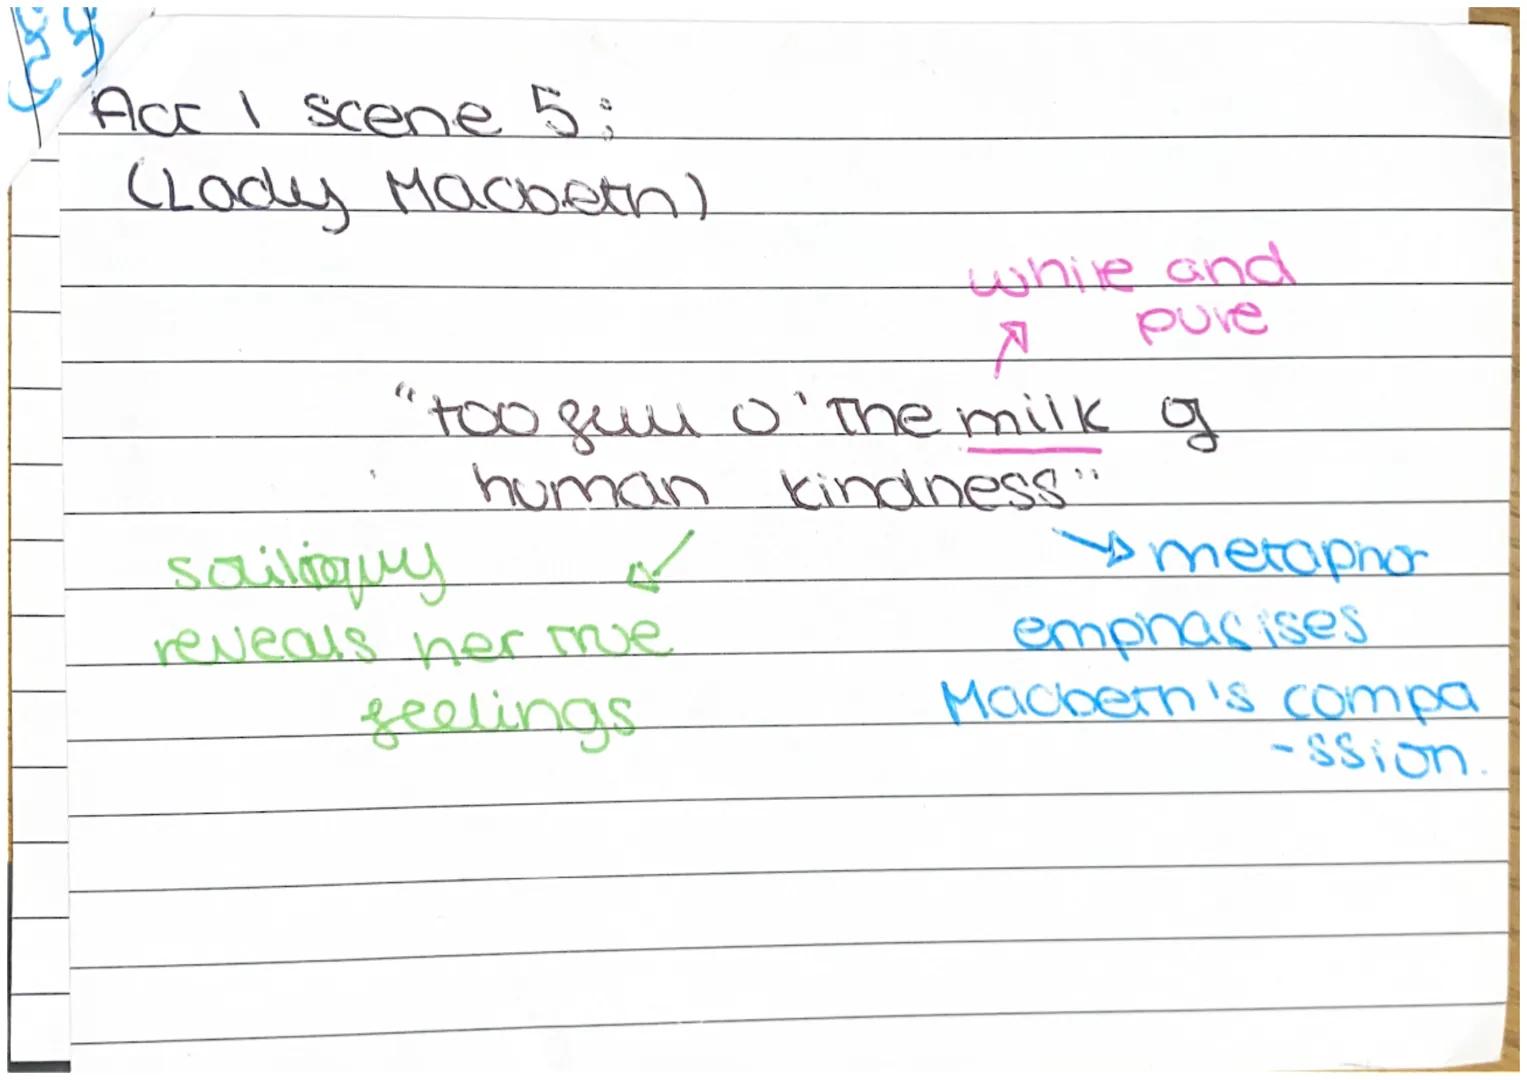 Act 1 scene 5:
(Lady Macbeth)
white and
pure
"too full o' the milk of
human kindness"
soliloquy
reveals her true
feelings
metaphor
emphasises
Macbeth's compa
-ssion.